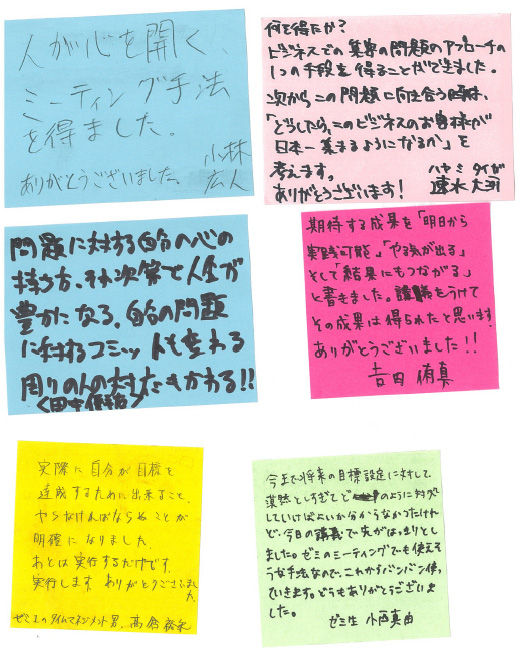 人が心を開く、
ミーティング手法
を得ました。
小林
ありがとうございました。広人
何を得たか？
ビジネスでの集客の問題のアプローチの
1つの手段を得ることができました。
次からこの問題に向き合う時は、
「どうしたら、このビジネスのお客様が
日本一集まるようになるか」を
考えます。
ハヤミ タイガ
ありがとうございます！ 速水 大羽
問題に対する自分の心の
持ち方、それ次第で人生が
豊かになる。自分の問題
に対するコミットも変わる
周りの人の対応もかわる!!
期待する成果を「明日から
実践可能」、「やる気が出る」
そして「結果にもつながる」
と書きました。講義をうけて
その成果は得られたと思います。
ありがとうございました！！
吉田 侑真
実際に自分が目標を
達成するために出来ること、
やらなければならぬことが
明確になりました。
あとは実行するだけです。
実行します ありがとうございました
ゼミ1のタイムマネジメント男、高倉
今まで将来の目標設定に対して
漠然としすぎてどのように対処
していけばよいか分からなかったけれ
ど、今日の講義で先がはっきりと
しました。ゼミのミーティングでも使えそ
うな手法なので、これからバンバン使っ
ていきます。どうもありがとうございま
した。
ゼミ生 小西真由